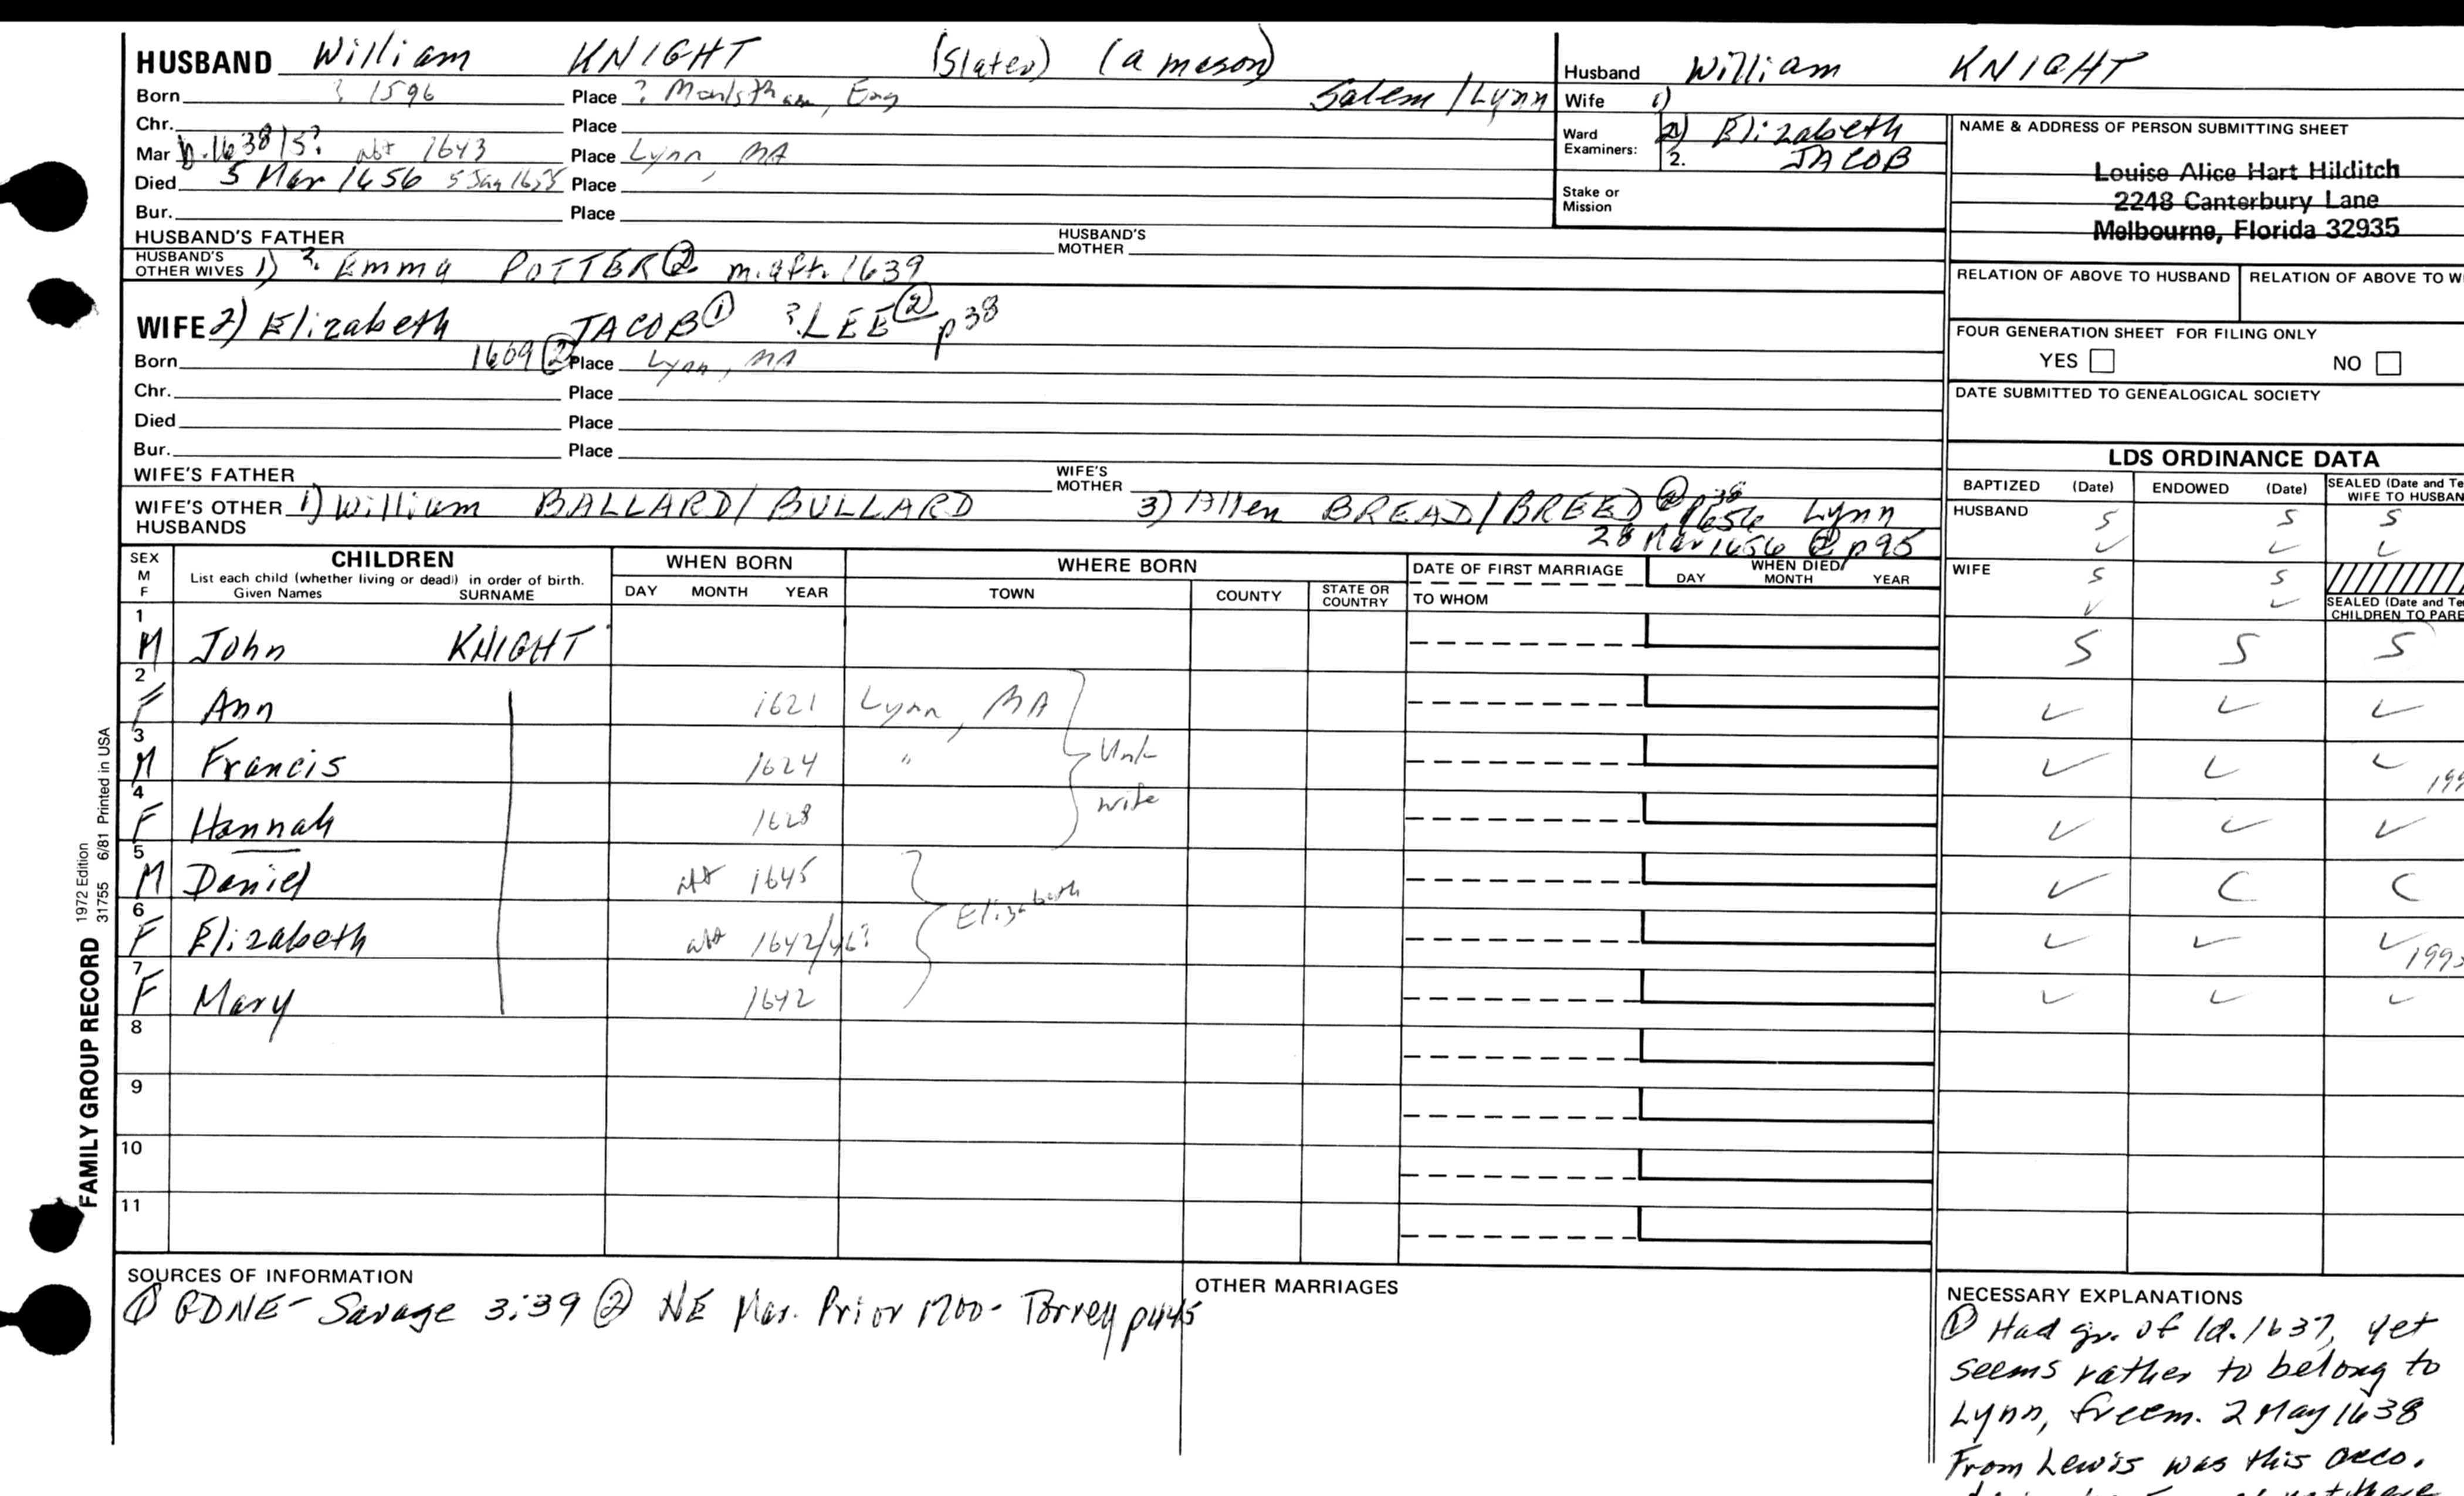 HUSBAND William KNIGHT (Slater) (a mason)
Born ? 1596 Place ? Eng Salem / Lynn
Chr. Place
Mar b. 1638/5? abt 1643 Place Lynn, MA
Died 5 Mar 1656 5 Jan 1655 Place
Bur. Place
HUSBAND'S FATHER HUSBAND'S MOTHER
HUSBAND'S OTHER WIVES 1) ? Emma POTTER ② m. aft. 1639
WIFE 2) Elizabeth JACOB ① ? LEE ② p38
Born 1609 ② Place Lynn, MA
Chr. Place
Died Place
Bur. Place
WIFE'S FATHER WIFE'S MOTHER
WIFE'S OTHER HUSBANDS 1) William BALLARD/BULLARD 3) Allen BREAD/BREED ② p38 1656 Lynn
28 Mar 1656 ② p95
Husband William KNIGHT
Wife 1)
Ward Examiners: 2) Elizabeth
2. JACOB
Stake or Mission
NAME & ADDRESS OF PERSON SUBMITTING SHEET
Louise Alice Hart Hilditch
2248 Canterbury Lane
Melbourne, Florida 32935
RELATION OF ABOVE TO HUSBAND RELATION OF ABOVE TO WI
FOUR GENERATION SHEET FOR FILING ONLY
YES NO
DATE SUBMITTED TO GENEALOGICAL SOCIETY
LDS ORDINANCE DATA
BAPTIZED (Date) ENDOWED (Date) SEALED (Date and Te
WIFE TO HUSBAN
HUSBAND S S S
✓ ✓ ✓
WIFE S S
✓ ✓
SEALED (Date and Te
CHILDREN TO PARE
SEX M F CHILDREN WHEN BORN WHERE BORN DATE OF FIRST MARRIAGE WHEN DIED
List each child (whether living or dead) in order of birth.
Given Names SURNAME DAY MONTH YEAR TOWN COUNTY STATE OR COUNTRY TO WHOM DAY MONTH YEAR
1 M John KNIGHT S S S
2 F Ann 1621 Lynn, MA ✓ ✓ ✓
3 M Francis 1624 " Unk ✓ ✓ ✓ 199
4 F Hannah 1628 wife ✓ ✓ ✓
5 M Daniel abt 1645 ✓ C C
6 F Elizabeth abt 1642/46? Elizabeth ✓ ✓ ✓ 1993
7 F Mary 1642 ✓ ✓ ✓
8
9
10
11
FAMILY GROUP RECORD 1972 Edition
31755 6/81 Printed in USA
SOURCES OF INFORMATION
① GDNE - Savage 3:39 ② NE Mar. Prior 1700 - Torrey p445
OTHER MARRIAGES
NECESSARY EXPLANATIONS
① Had gr. of ld. 1637, yet
seems rather to belong to
Lynn, freem. 2 May 1638
From Lewis was this